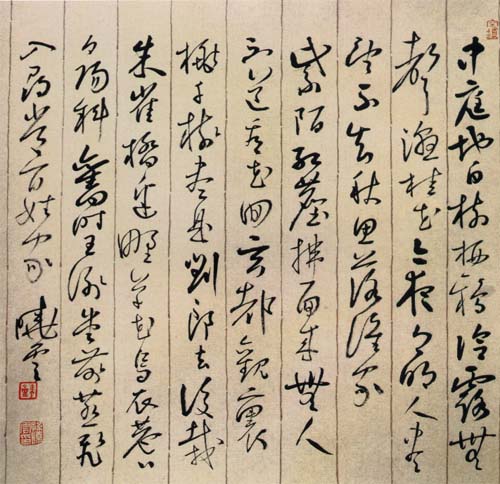 中庭地白樹栖鴉冷露無
聲濕桂花今夜月明人盡
望不知秋思落誰家
紫陌紅塵拂面來無人
不道看花回玄都觀裏
桃千樹盡是劉郎去後栽
朱雀橋邊野草花烏衣巷口
夕陽斜舊時王謝堂前燕飛
入尋常百姓家 曉雲